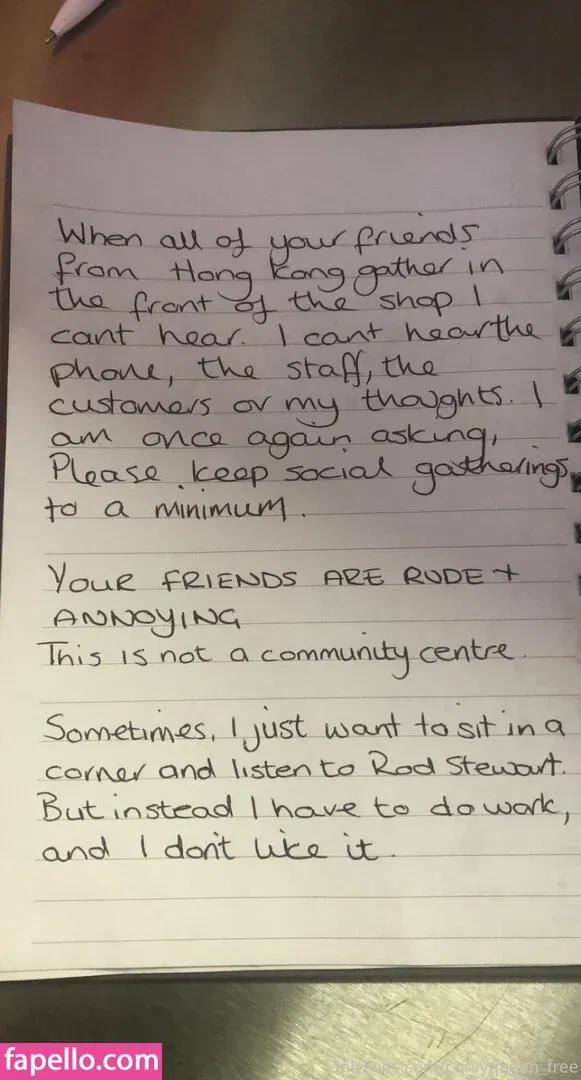 When all of your friends
from Hong Kong gather in
the front of the shop I
cant hear. I cant hear the
phone, the staff, the
customers or my thoughts. I
am once again asking,
Please keep social gatherings
to a minimum.
YOUR FRIENDS ARE RUDE +
ANNOYING
This is not a community centre.
Sometimes, I just want to sit in a
corner and listen to Rod Stewart.
But instead I have to do work,
and I don't like it.
fapello.com